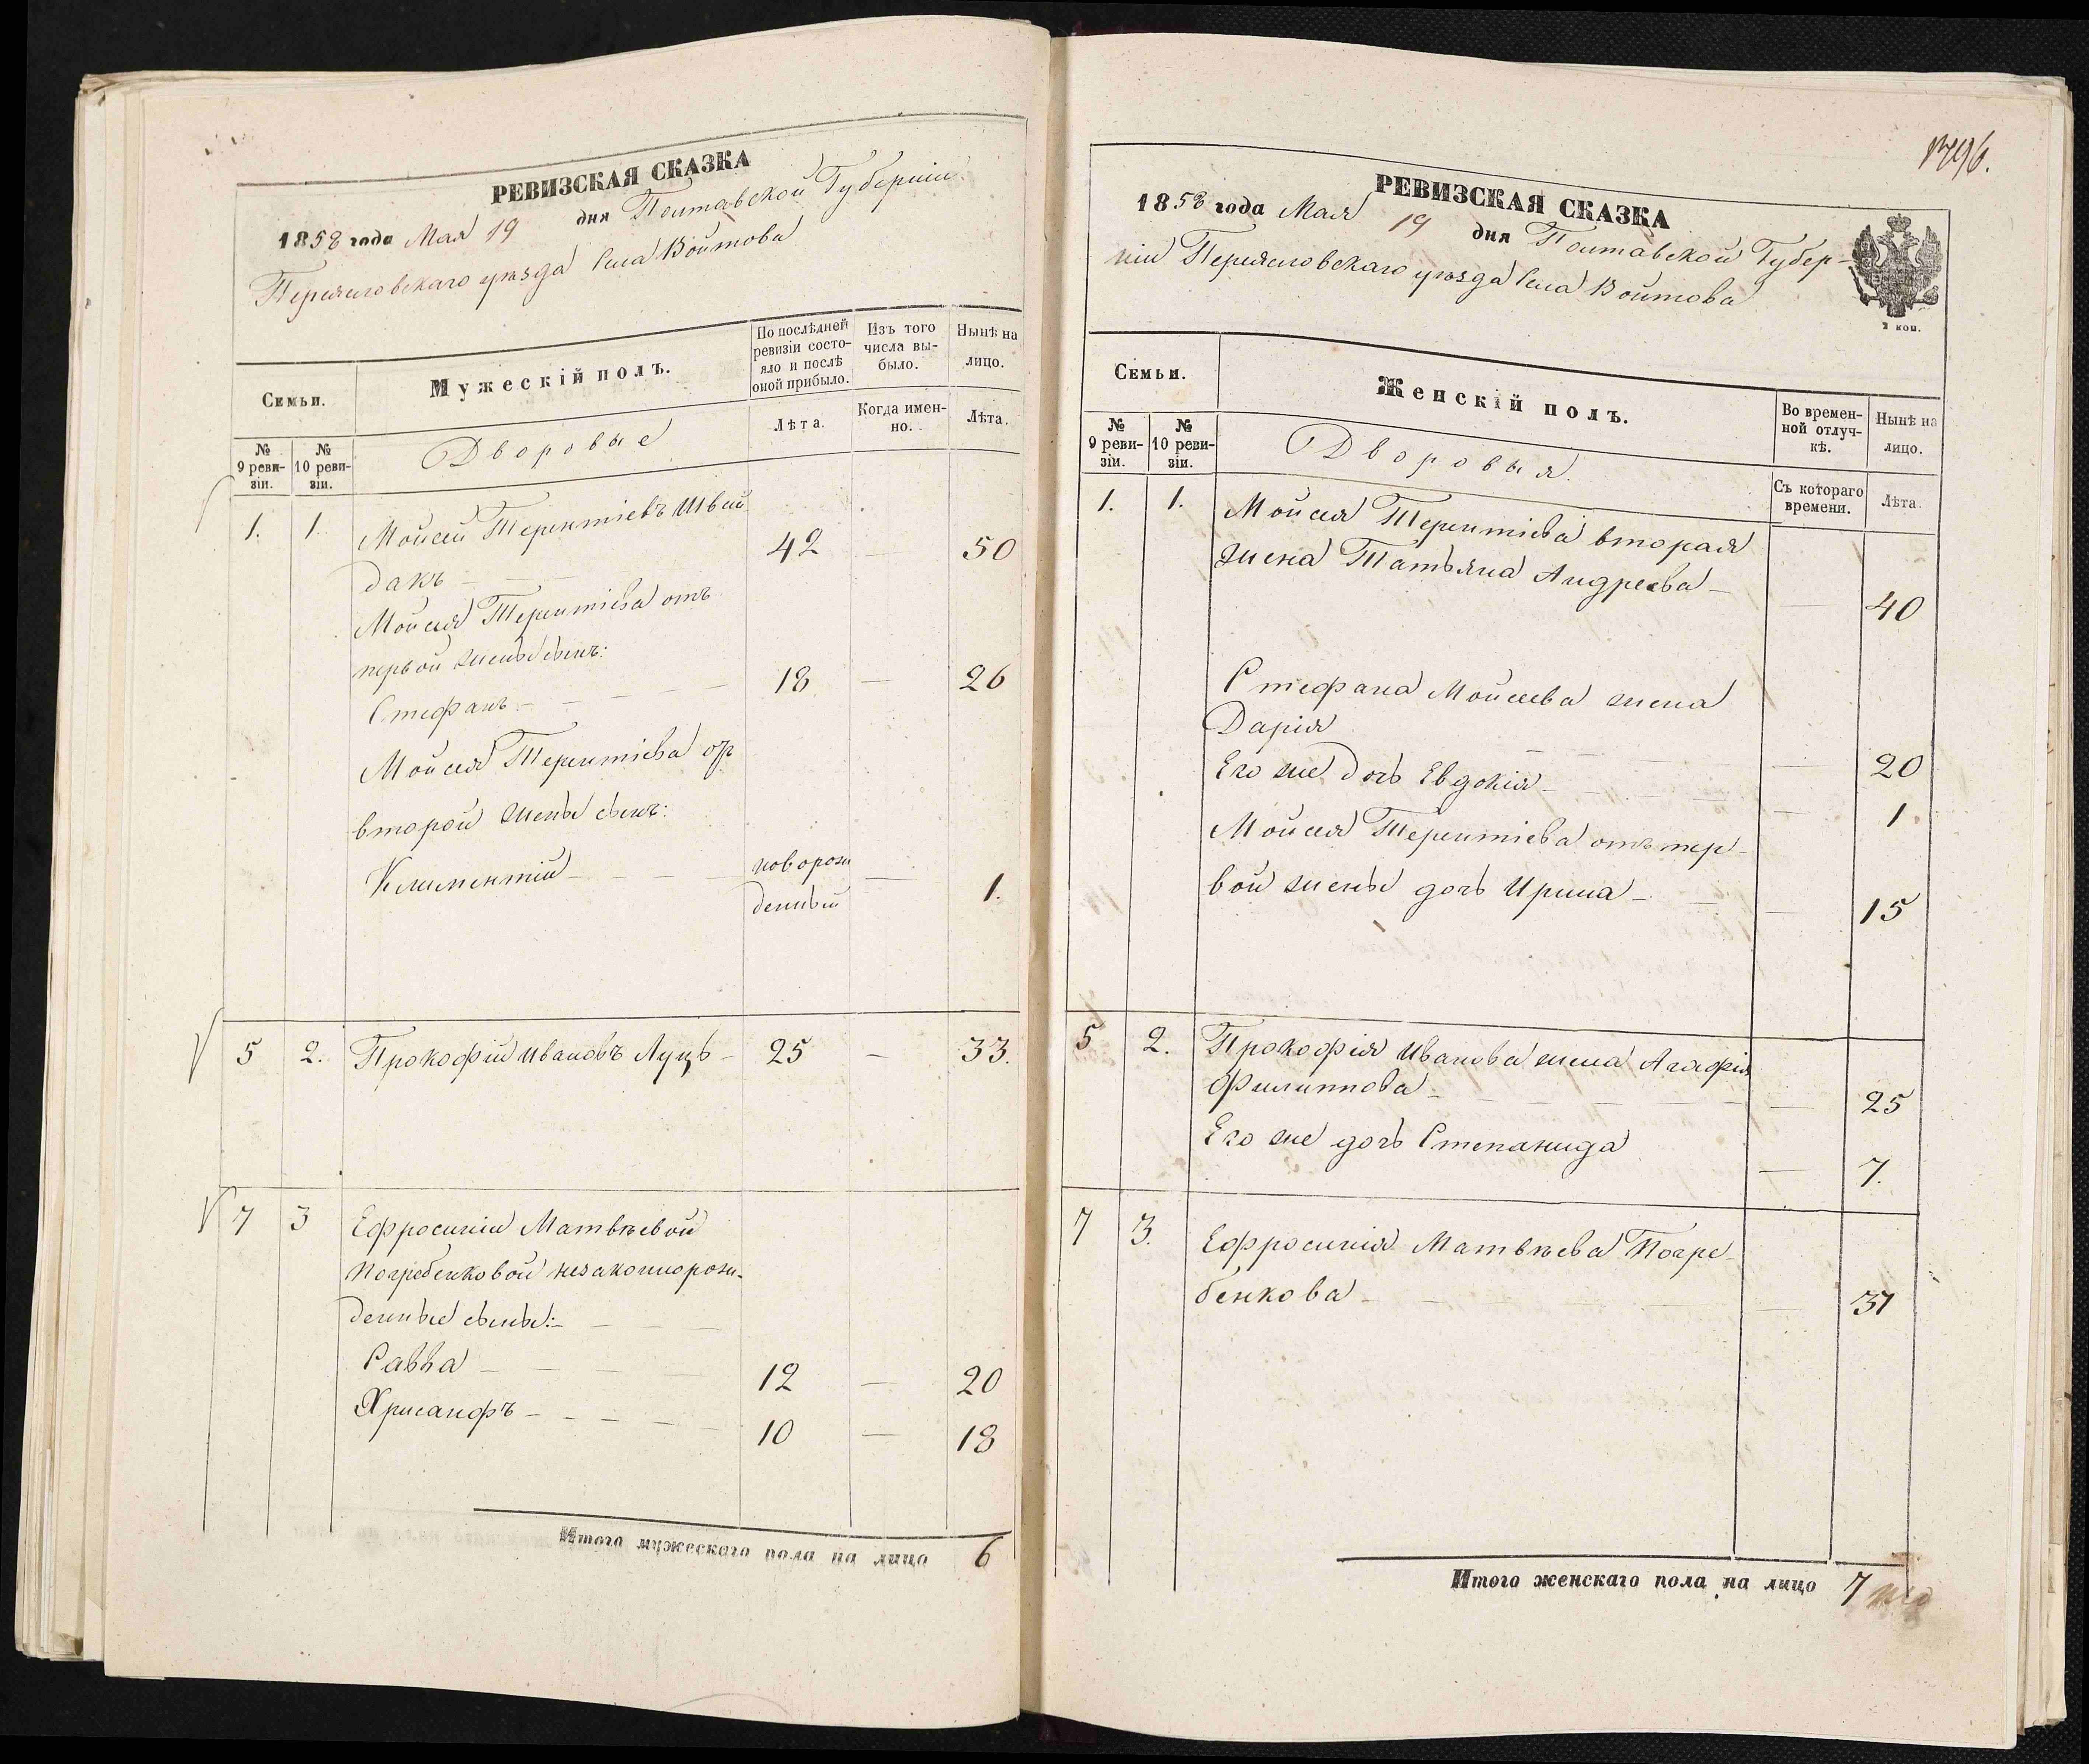 РЕВИЗСКАЯ СКАЗКА
1858 года Мая 19 дня Полтавской Губерніи
Переяславскаго уѣзда Села Войтова
Семьи.
Мужескій полъ.
По послѣдней ревизіи состояло и послѣ оной прибыло.
Изъ того числа выбыло.
Нынѣ на лицо.
№ 9 ревизіи.
№ 10 ревизіи.
Дворовые
Лѣта.
Когда именно.
Лѣта.
1. 1. Мойсей Терентіевъ Швай
дакъ 42 — 50
Мойсея Терентіева отъ
первой жены сынъ:
Стефанъ 18 — 26
Мойсея Терентіева отъ
второй жены сынъ:
Климентій новорож — 1.
денный
5 2. Прокофій Ивановъ Луць 25 — 33.
7 3 Ефросиніи Матвѣевой
Погребенковой незаконнорож-
денные сыны:
Савва 12 — 20
Хрисанфъ 10 — 18
Итого мужескаго пола на лицо 6
РЕВИЗСКАЯ СКАЗКА
1858 года Мая 19 дня Полтавской Губер-
ніи Переяславскаго уѣзда Села Войтова
2 коп.
Семьи.
Женскій полъ.
Во временной отлучкѣ.
Нынѣ на лицо.
№ 9 ревизіи.
№ 10 ревизіи.
Дворовыя.
Съ котораго времени.
Лѣта.
1. 1. Мойсея Терентіева вторая
жена Татьяна Андреева — 40
Стефана Мойсеева жена
Дарія — 20
Его же дочь Евдокія — 1
Мойсея Терентіева отъ пер-
вой жены дочь Ирина — 15
5 2. Прокофія Иванова жена Агафія
Филиппова — 25
Его же дочь Степанида — 7.
7 3. Ефросинія Матвѣева Погре-
бенкова — 37
Итого женскаго пола на лицо 7